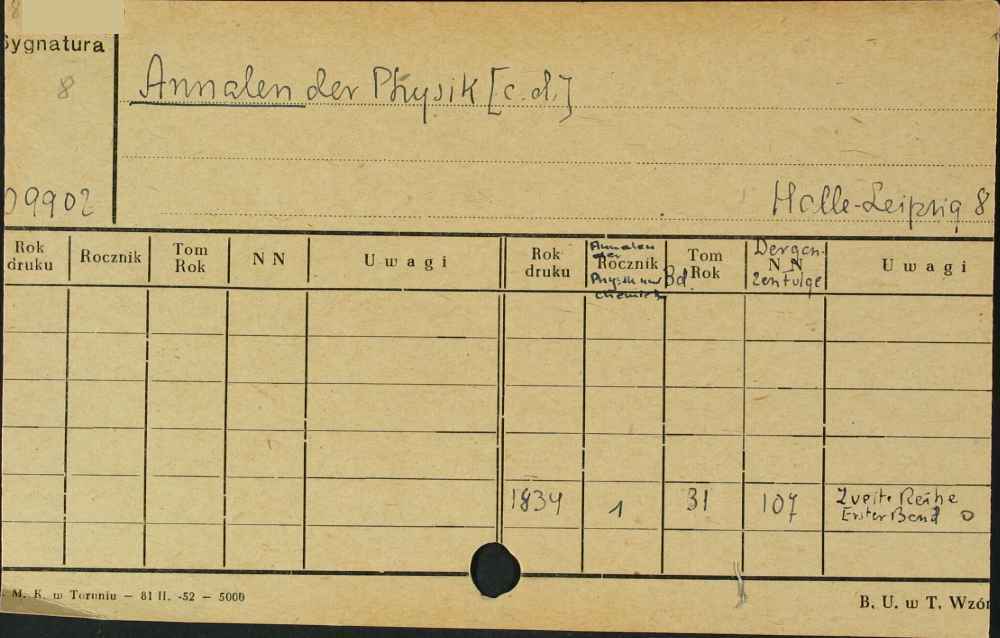 8
Sygnatura
8
Annalen der Physik [c.d.]
09902
Halle-Leipzig 8
Rok druku
Rocznik
Tom Rok
N N
Uwagi
Rok druku
Annalen der
Rocznik
Physik und
Chemie
Bd.
Tom Rok
Der gan-
N N
zen Folge
Uwagi
1834
1
31
107
Zweite Reihe
Erster Band
0
. M. K. w Toruniu — 81 II. -52 — 5000
B. U. w T. Wzór